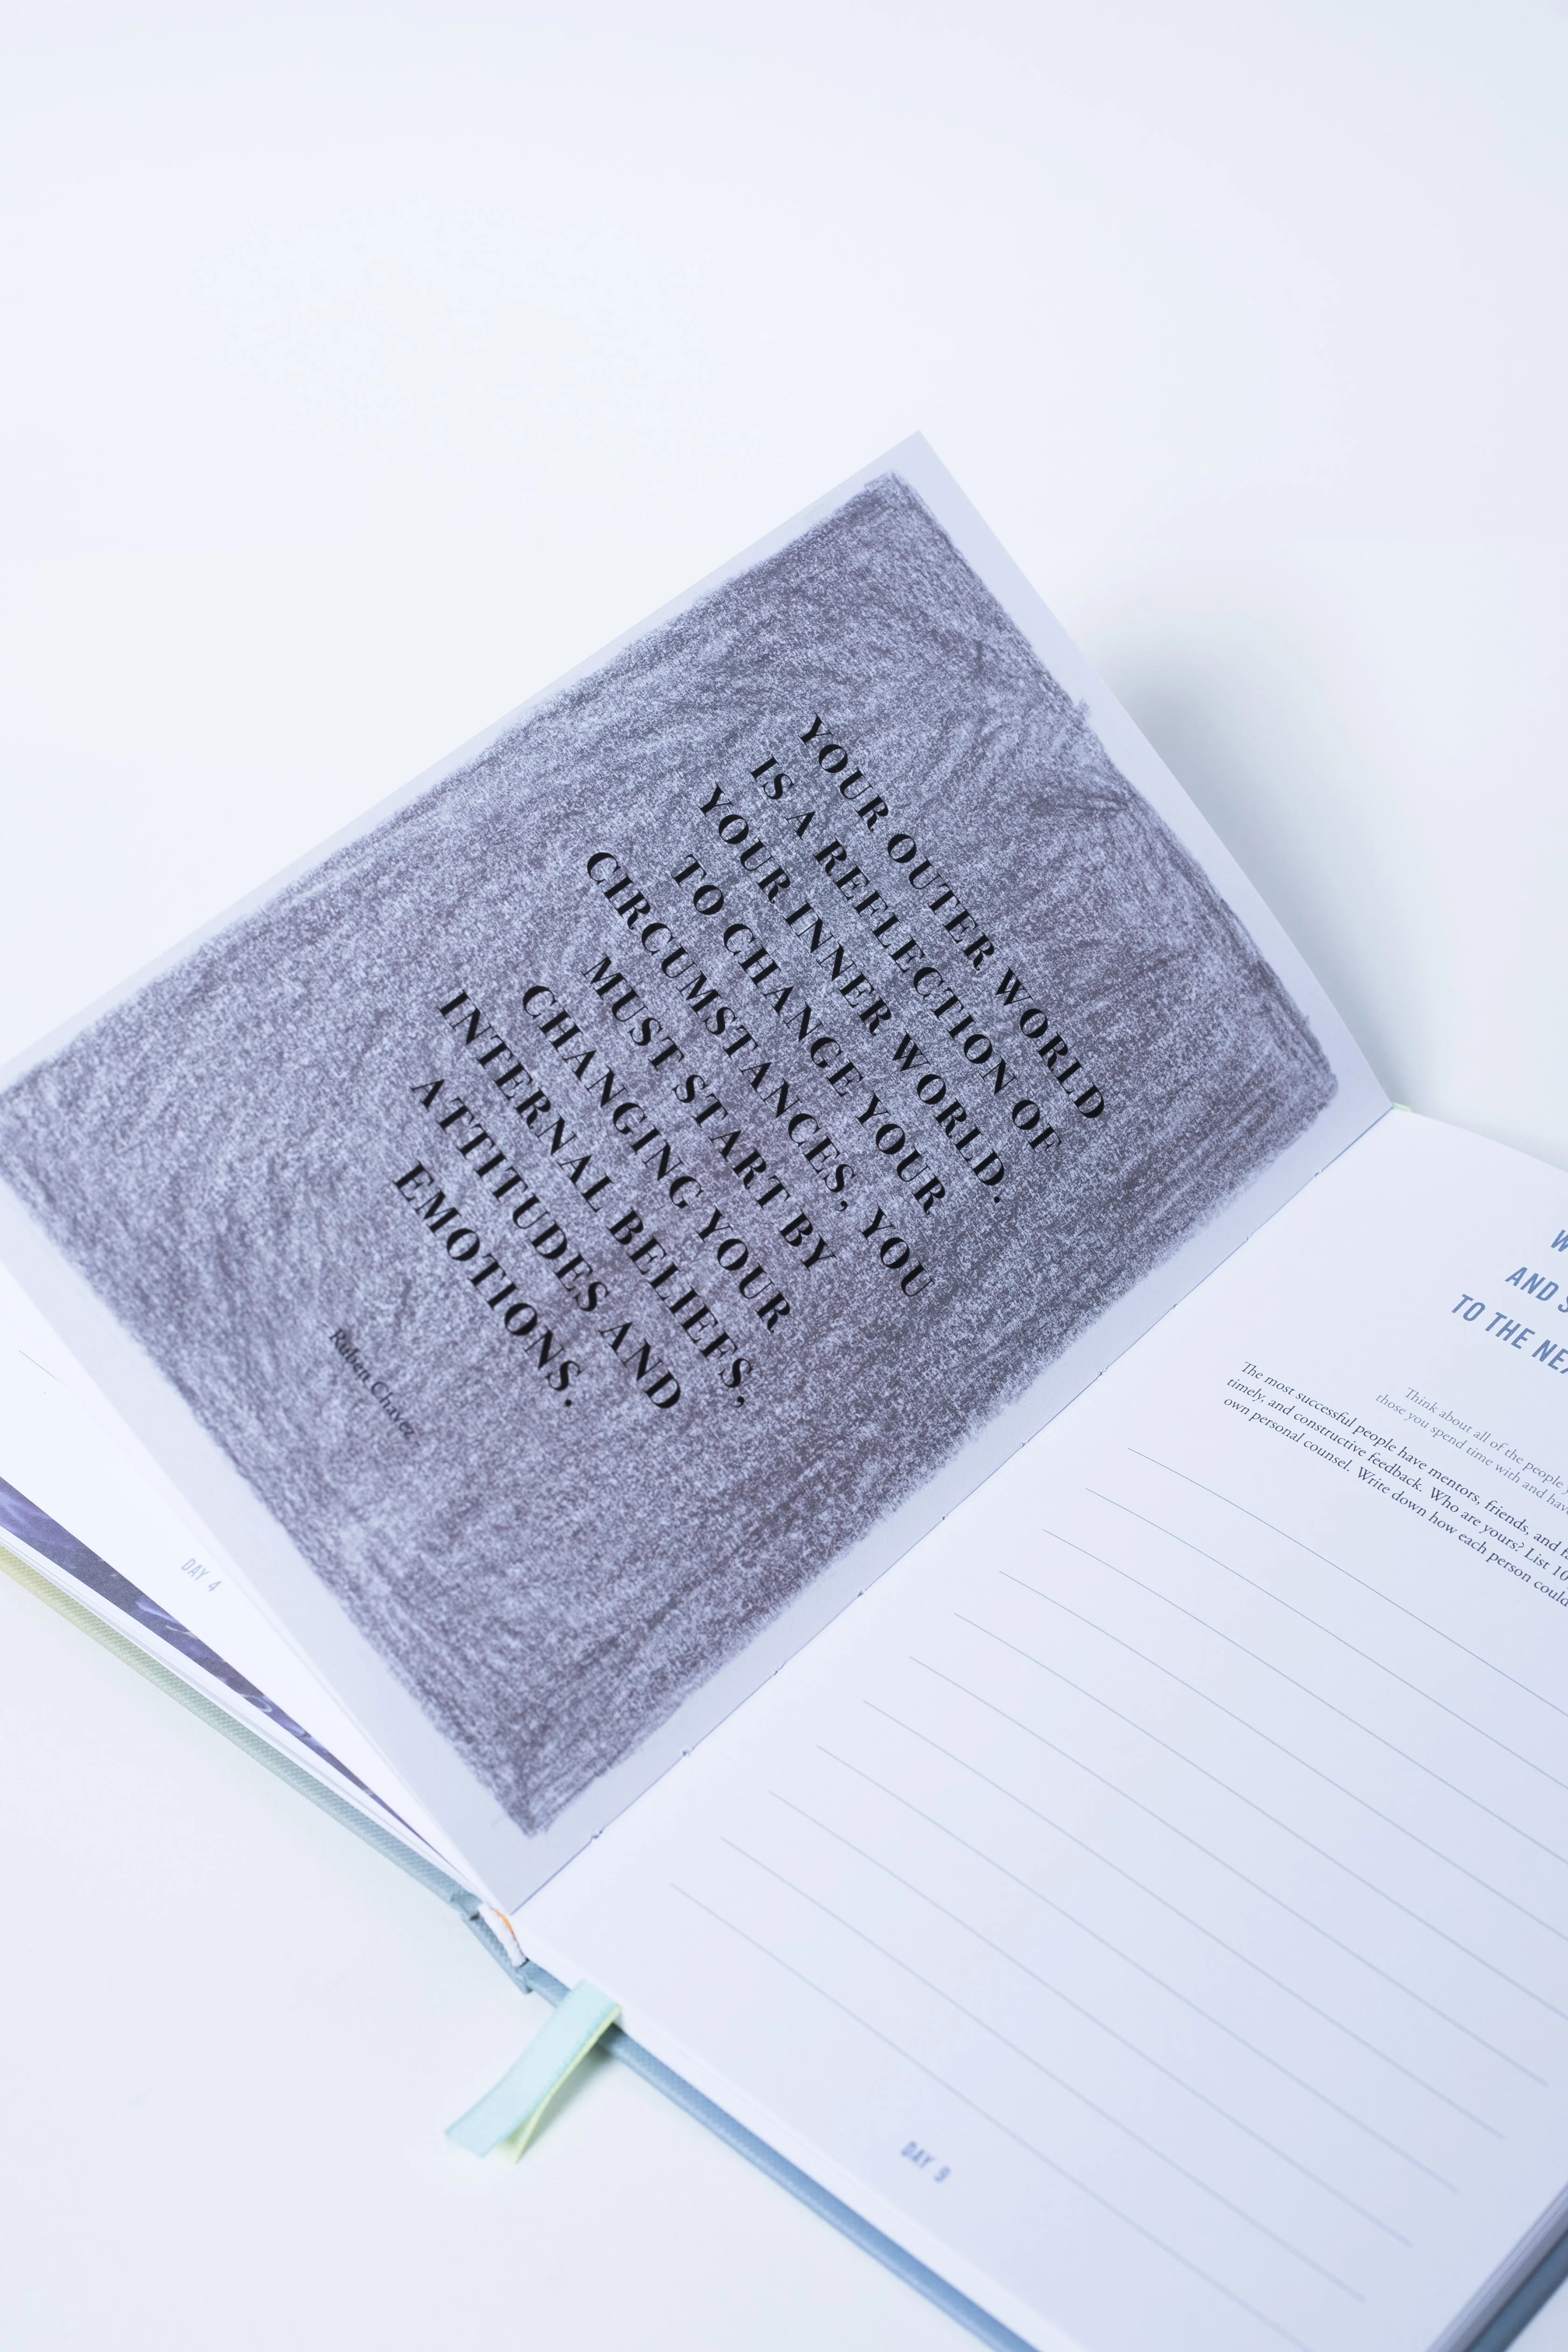 YOUR OUTER WORLD
IS A REFLECTION OF
YOUR INNER WORLD.
TO CHANGE YOUR
CIRCUMSTANCES, YOU
MUST START BY
CHANGING YOUR
INTERNAL BELIEFS,
ATTITUDES AND
EMOTIONS.
Ruben Chavez
DAY 4
AND
TO THE
Think about all of the people
those you spend time with and
The most successful people have mentors, friends, and
timely, and constructive feedback. Who are yours? List 10
own personal counsel. Write down how each person could
DAY 9